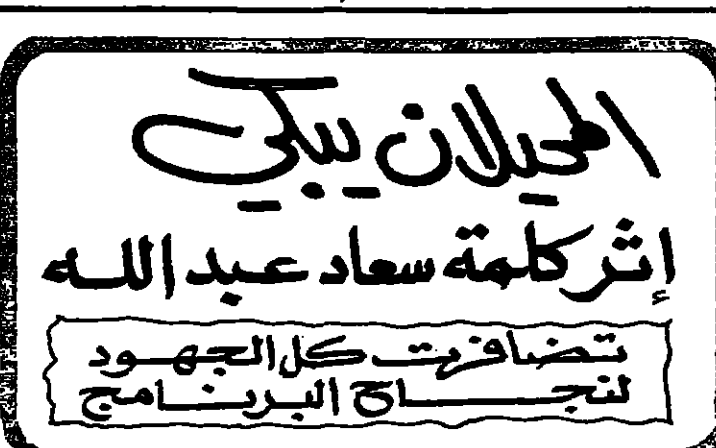 المحيلان يبكي
إثر كلمة سعاد عبد الله
تضافرت كل الجهود
لنجاح البرنامج